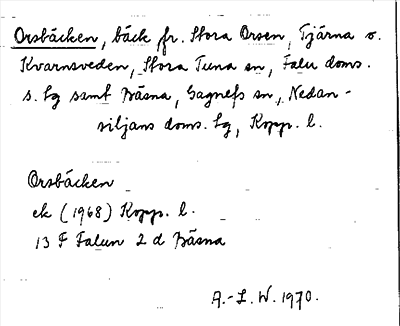 Orsbäcken, bäck fr. Stora Orsen, Tjärna o.
Kvarnsveden, Stora Tuna sn, Falu doms.
s. lg samt Bäsna, Gagnefs sn, Nedan-
siljans doms. lg, Kopp. l.
Orsbäcken
ek (1968) Kopp. l.
13 F Falun 2 d Bäsna
A.-L. W. 1970.